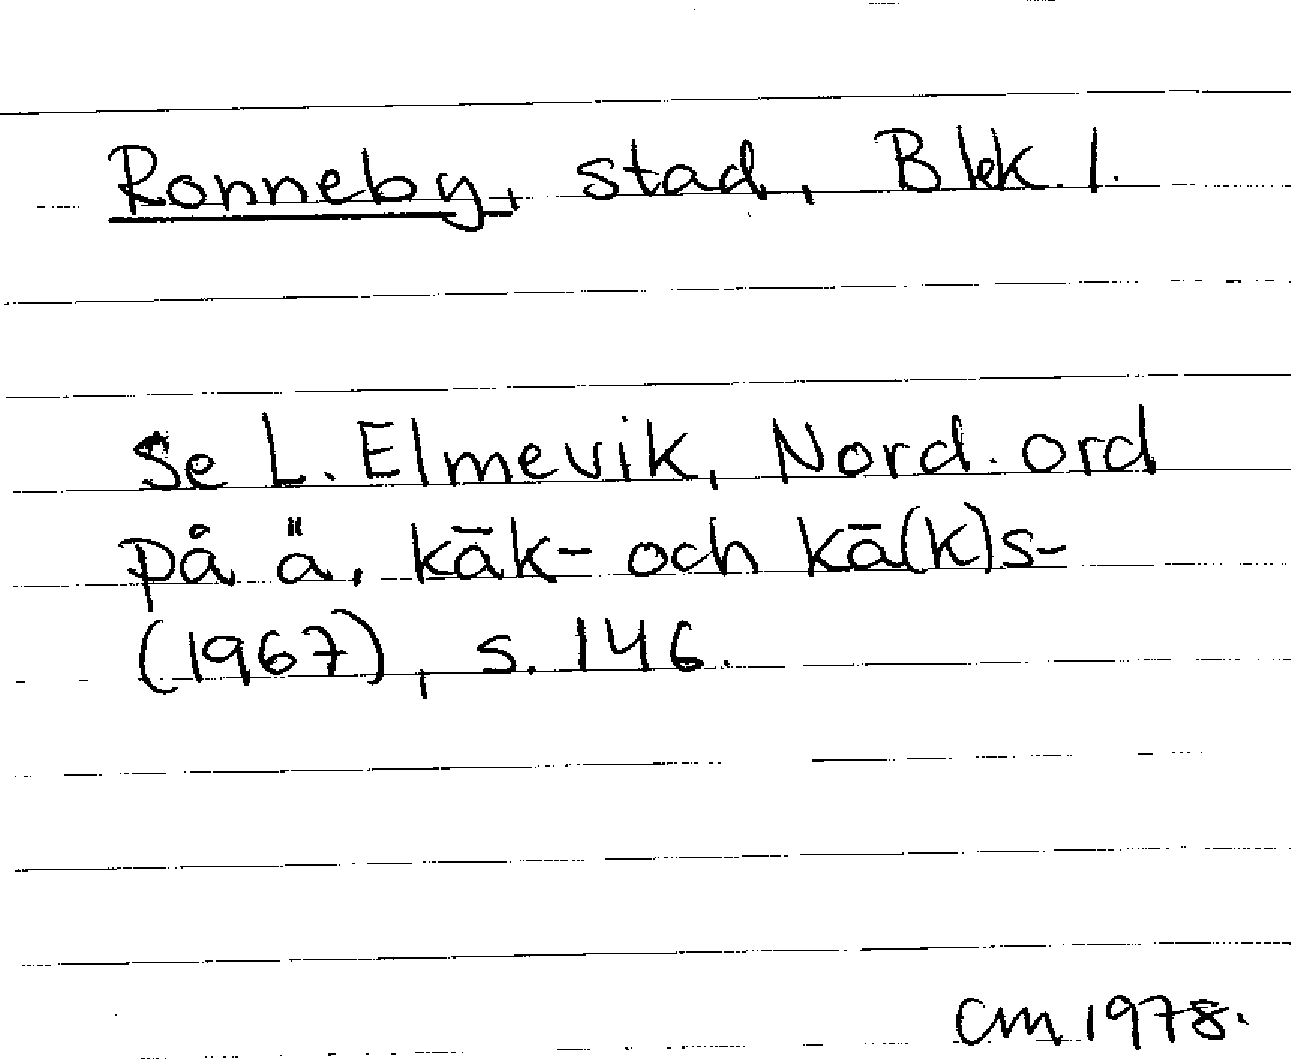 Ronneby, stad, Blek. l.
Se L. Elmevik, Nord. ord
på ä, kāk- och kā(k)s-
(1967), s. 146.
CM 1978.